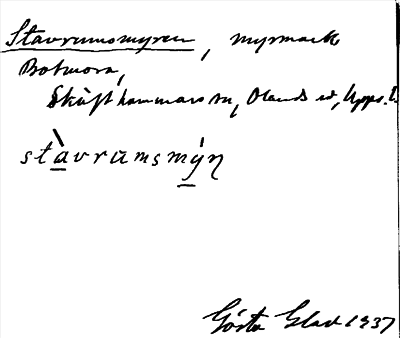 Stavrumsmyren, myrmark
Botmora,
Skäfthammars sn, Olands hd, Upps. l.
stàvrumsmýŋ
Gösta Glad 1937